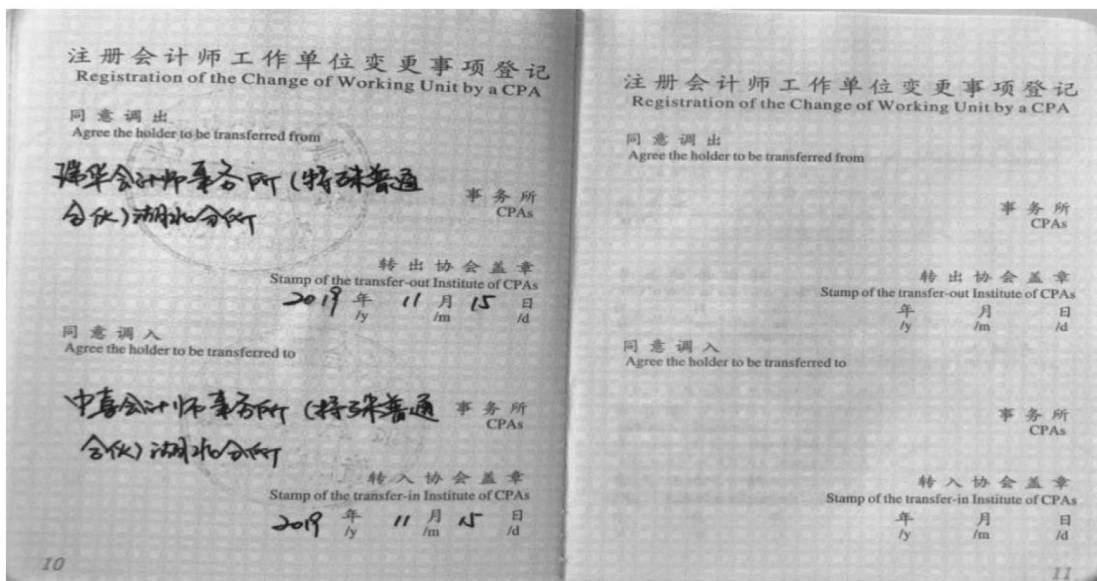 注册会计师工作单位变更事项登记
Registration of the Change of Working Unit by a CPA
同意调出
Agree the holder to be transferred from
瑞华会计师事务所(特殊普通
合伙)湖北分所
事务所
CPAs
转出协会盖章
Stamp of the transfer-out Institute of CPAs
2019 年 11 月 15 日
/y /m /d
同意调入
Agree the holder to be transferred to
中喜会计师事务所(特殊普通
合伙)湖北分所
事务所
CPAs
转入协会盖章
Stamp of the transfer-in Institute of CPAs
2019 年 11 月 15 日
/y /m /d
10
注册会计师工作单位变更事项登记
Registration of the Change of Working Unit by a CPA
同意调出
Agree the holder to be transferred from
事务所
CPAs
转出协会盖章
Stamp of the transfer-out Institute of CPAs
年 月 日
/y /m /d
同意调入
Agree the holder to be transferred to
事务所
CPAs
转入协会盖章
Stamp of the transfer-in Institute of CPAs
年 月 日
/y /m /d
11